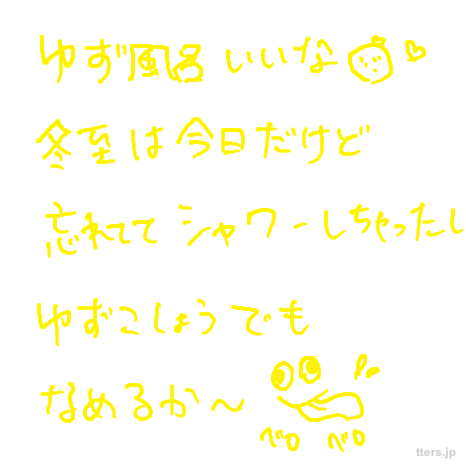 ゆず風呂いいな
冬至は今日だけど
忘れててシャワーしちゃったし
ゆずこしょうでも
なめるか～
ベロ ベロ
tters.jp